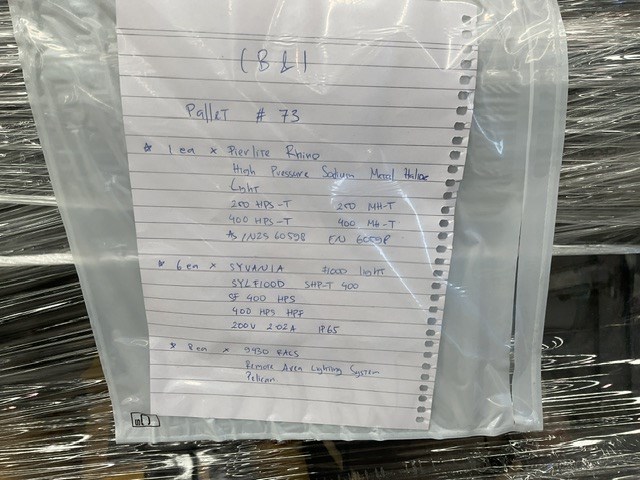 ( B & )
Pallet # 73
* 1 ea x Pierlite Rhino
High Pressure Sodium Metal Halide
Light
250 HPS-T 250 MH-T
400 HPS-T 400 MH-T
AS/NZS 60598 EN 60598
* 6 ea x SYVANIA Flood light
SYLFLOOD SHP-T 400
SF 400 HPS
400 HPS HPF
200V 2.02A IP65
* 8 ea x 9430 RALS
Remote Area Lighting System
Pelican